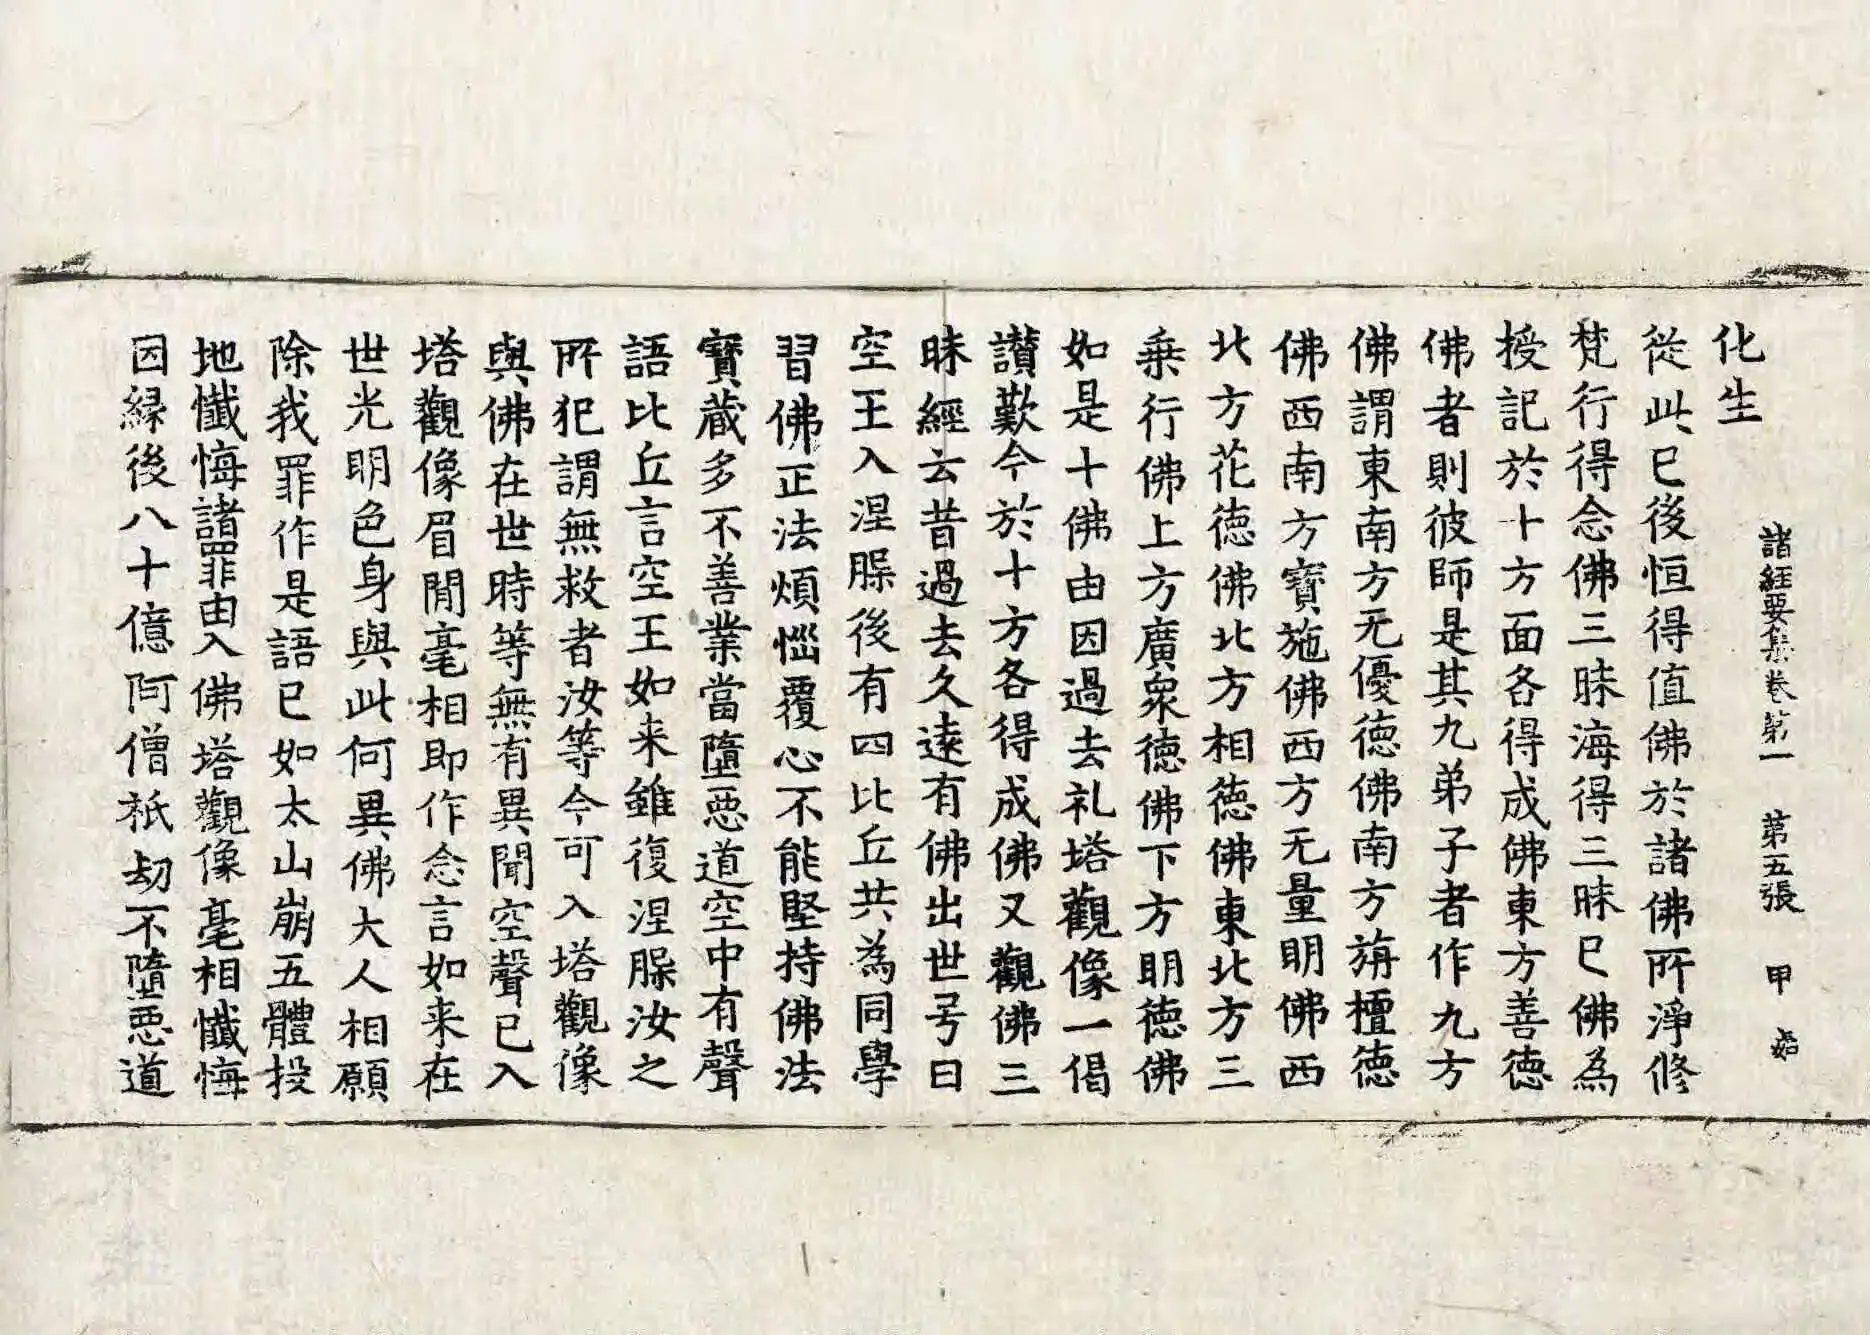 諸經要集卷第一　第五張　甲
化生
從此已後恒得值佛於諸佛所淨修
梵行得念佛三昧海得三昧已佛為
授記於十方面各得成佛東方善徳
佛者則彼師是其九弟子者作九方
佛謂東南方无優徳佛南方旃檀徳
佛西南方寶施佛西方无量明佛西
北方花徳佛北方相徳佛東北方三
乗行佛上方廣衆徳佛下方明徳佛
如是十佛由因過去礼塔觀像一偈
讃歎今於十方各得成佛又觀佛三
昧經云昔過去久遠有佛出世号曰
空王入涅槃後有四比丘共為同學
習佛正法煩惱覆心不能堅持佛法
寶蔵多不善業當墮惡道空中有聲
語比丘言空王如来雖復涅槃汝之
所犯謂無救者汝等今可入塔觀像
與佛在世時等無有異聞空聲已入
塔觀像眉間毫相即作念言如来在
世光明色身與此何異佛大人相願
除我罪作是語已如太山崩五體投
地懺悔諸罪由入佛塔觀像毫相懺悔
因縁後八十億阿僧祇劫不墮惡道